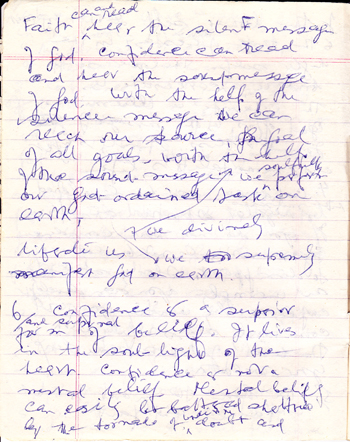 can read
Faith hear the silent message
of God. Confidence can read
and hear the sound message
of God. With the help of the
silence message we can
reach our source, the goal
of all goals. With the help
of the sound message we perform
our God-ordained task on
earth.
we divinely
we supremely
manifest God on earth.
6 Confidence is a superior
form of belief. It lives
in the soul light of the
heart. Confidence is not a
mental belief. Mental belief
can easily be and shattered
by the tornado of doubt and